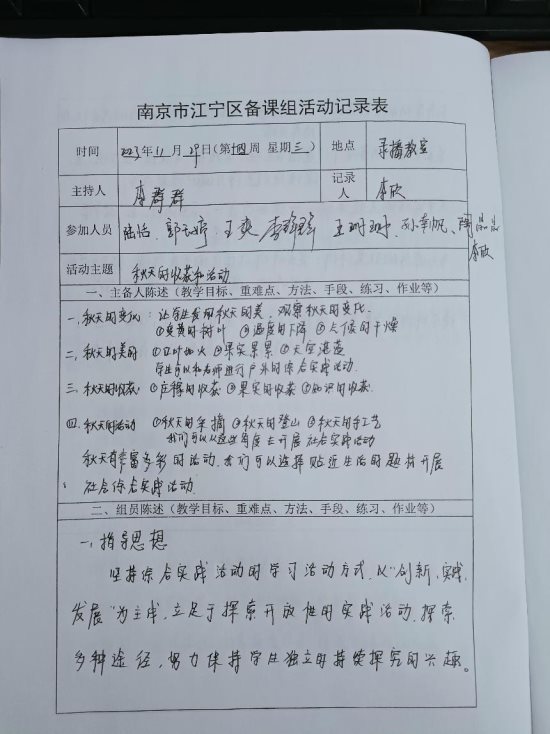 南京市江宁区备课组活动记录表
时间 2023年11月29日(第十四周 星期三) 地点 录播教室
主持人 李群群 记录人 李欣
参加人员 陆恬、郭 婷 王爽 李 王珊珊、孙 帆、陶晶晶
李欣
活动主题 秋天的收获和活动
一、主备人陈述(教学目标、重难点、方法、手段、练习、作业等)
一、秋天的变化:让学生发现秋天的美,观察秋天的变化.
①变黄的树叶 ②温度的下降 ③天候的干燥
二、秋天的美的 ①红叶如火 ②果实累累 ③天空湛蓝
学生可以和老师进行户外的综合实践活动.
三、秋天的收获:①庄稼的收获 ②果实的收获 ③知识的收获.
四、秋天的活动 ①秋天的采摘 ②秋天的登山 ③秋天的手工艺
我们可以从这些角度去开展社会实践活动
秋天有丰富多彩的活动.我们可以选择贴近生活的题材开展
社会综合实践活动.
二、组员陈述(教学目标、重难点、方法、手段、练习、作业等)
一、指导思想
坚持综合实践活动的学习活动方式,以"创新、实践、
发展"为主线,立足于探索开放性的实践活动,探索
多种途径,努力保持学生独立的持续探究的兴趣。